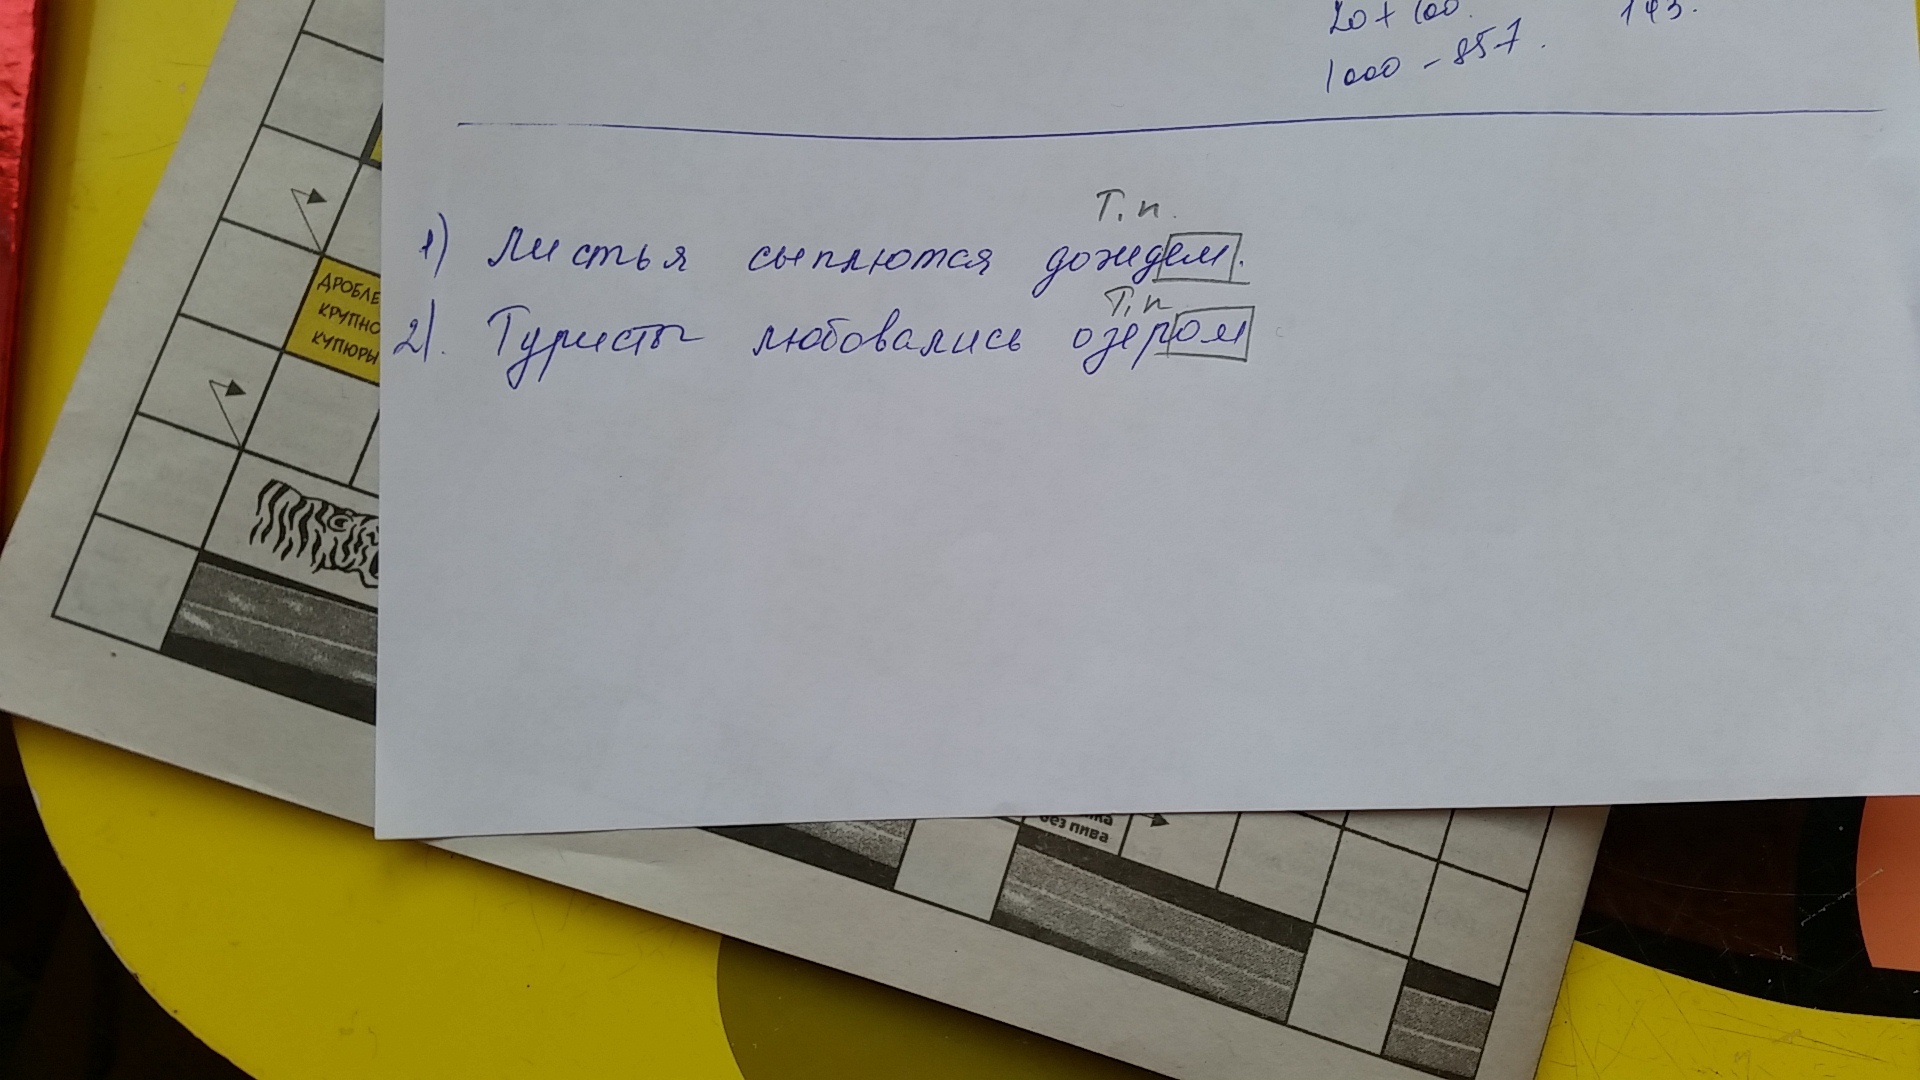 20 + 100. 143.
1000 - 857.
Т.п.
1) Листья сыплются дождем.
Т.п
2). Туристы любовались озером
ДРОБЛЕ
КРУПНО
КУПЮРЫ
без пива